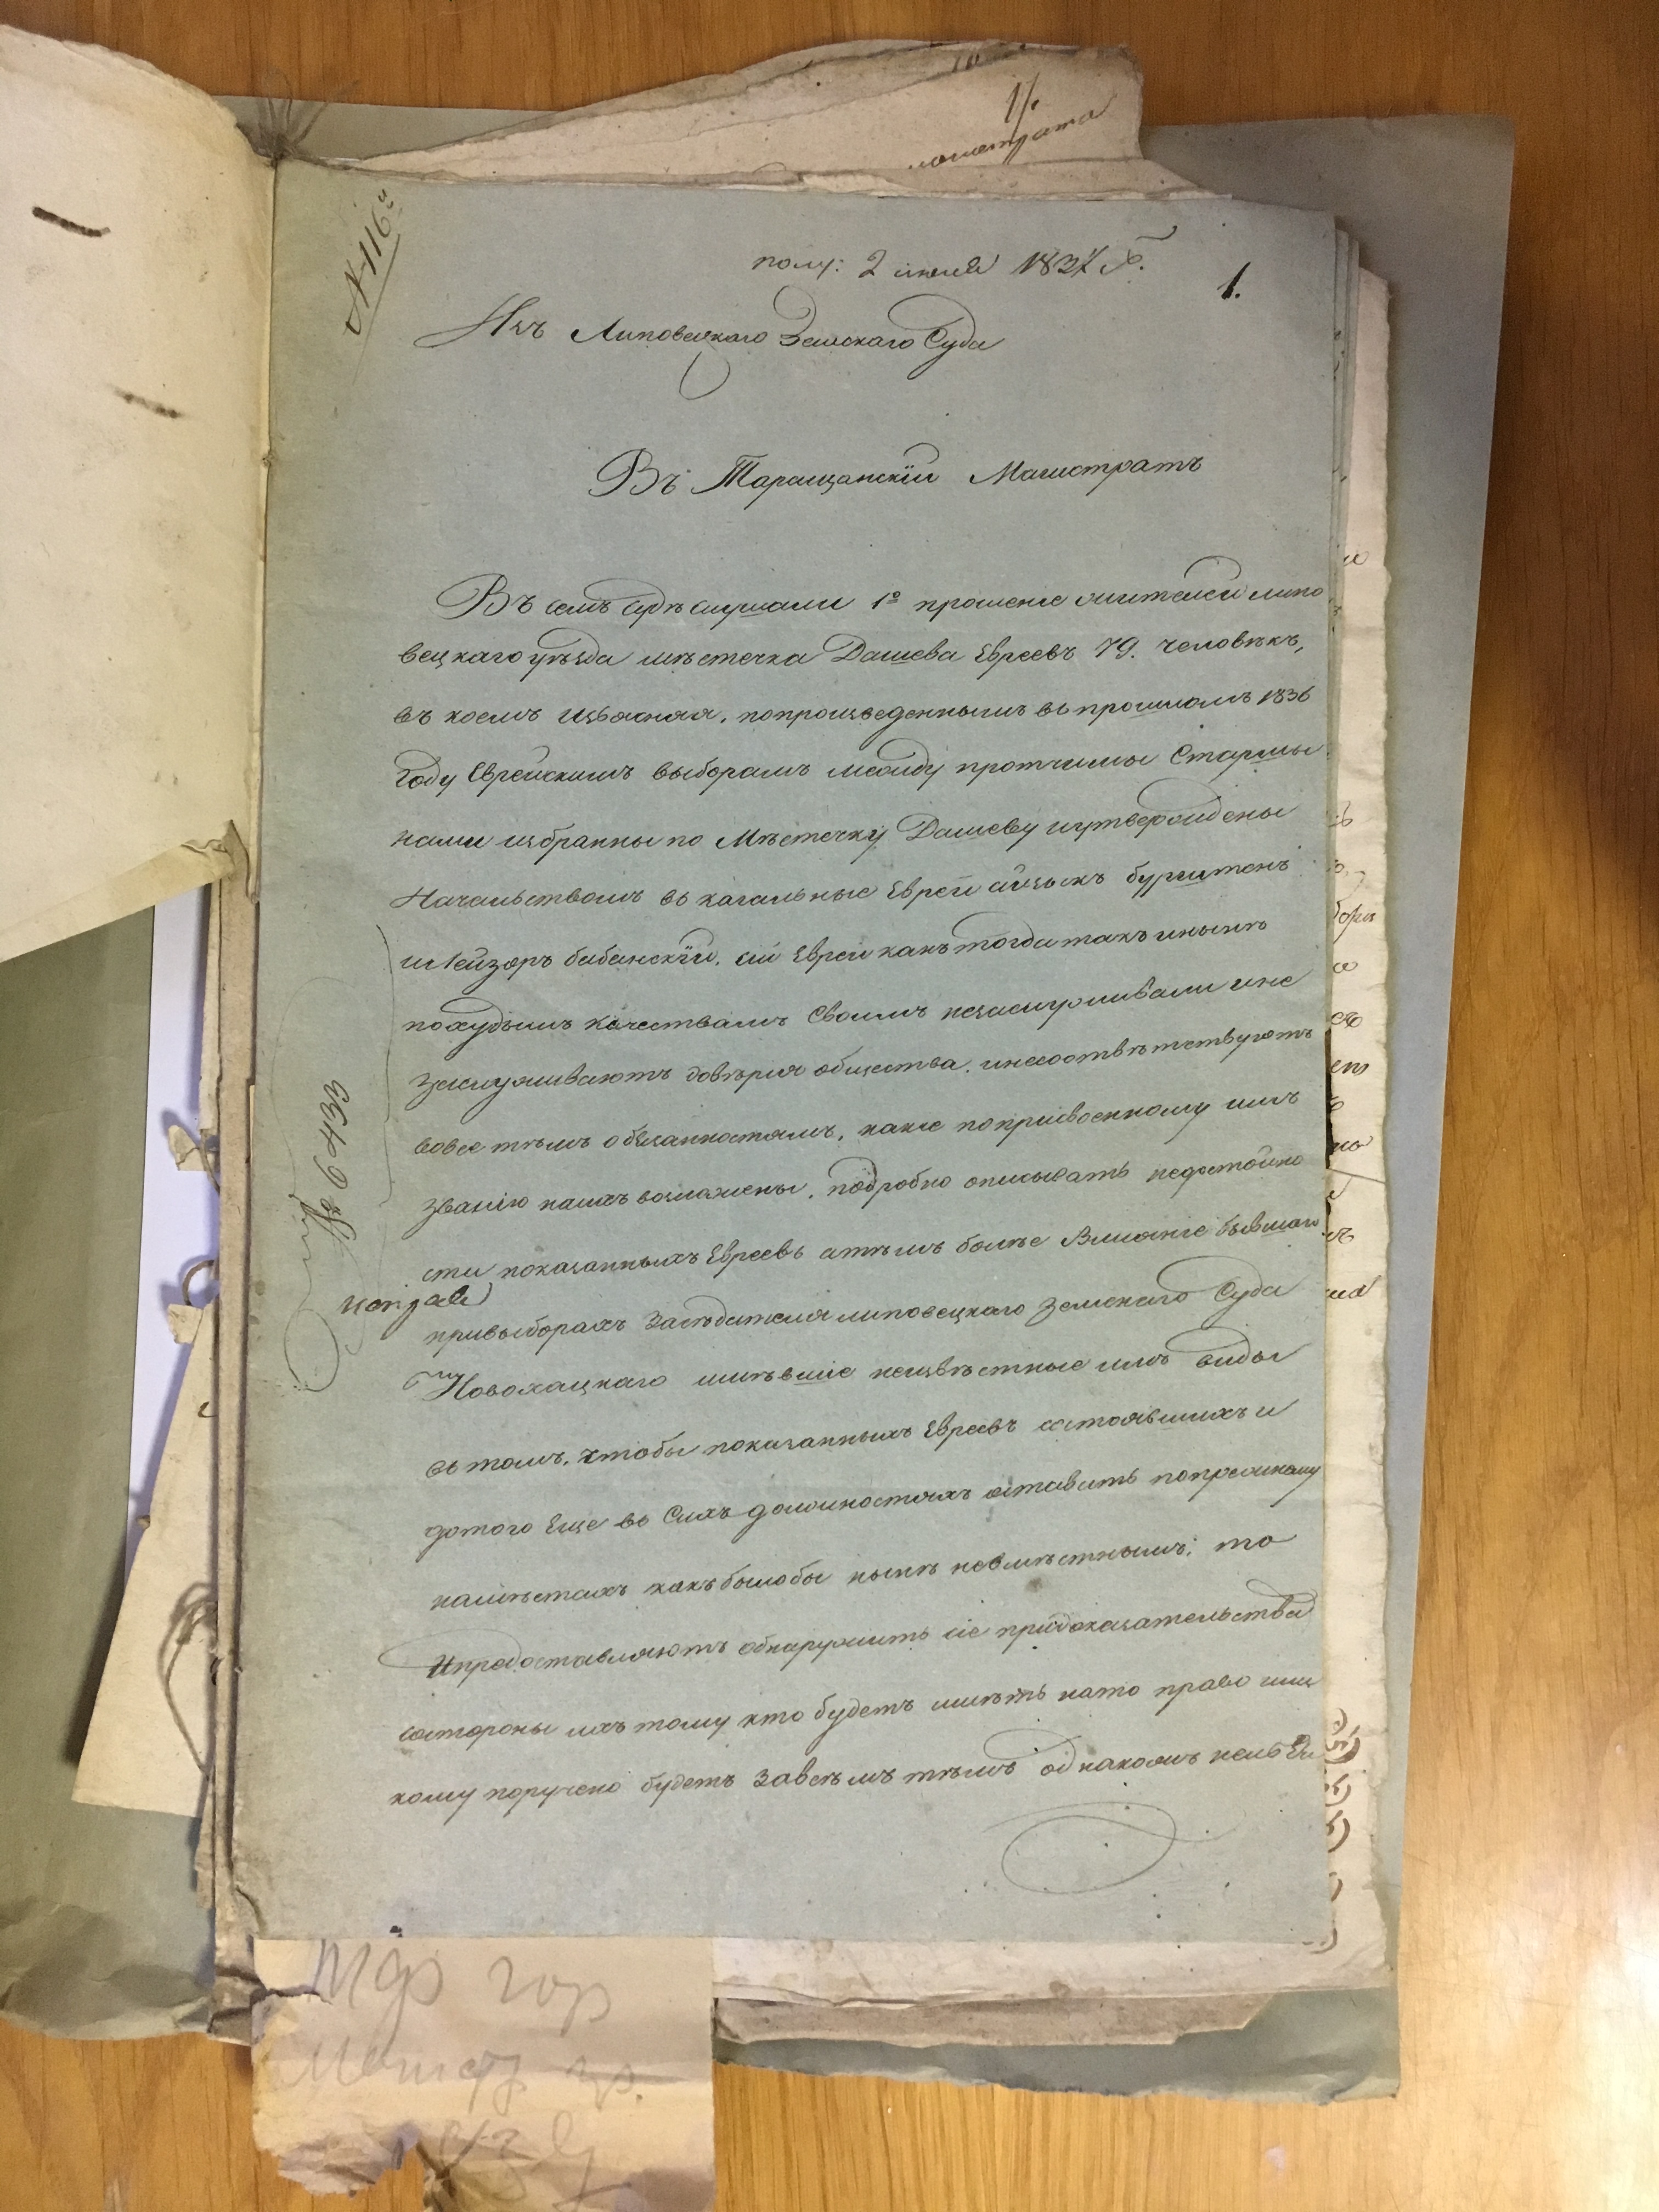 1/.
магистрата
№ 116й
полу: 2 июля 1837 г.
1.
Изъ Липовецкаго Земскаго Суда
Въ Таращанскій Магистратъ
Въ семъ судѣ слушали 1е прошеніе жителей липо
вецкаго уѣзда мѣстечка Дашева Евреевъ 79. человѣкъ,
въ коемъ изъясняя, попроизведеннымъ въ прошломъ 1836
году Еврейскимъ выборамъ между протчимы Старшы
нами избранны по Мѣстечку Дашеву иутверждены
Начальствомъ въ кагальные Евреи айзыкъ бурштенъ
илейзоръ бабанскій. сіи Евреи какътогдатакъ инынѣ
похудымъ качествамъ своимъ незаслуживали ине
заслуживаютъ довѣрія общества, инесоотвѣтствуютъ
вовсе тѣмъ обязанностямъ, какіе поприсвоенному имъ
званію нанихъ возложены, подробно описывать недостойно
сти показанныхъ Евреевъ атѣмъ болѣе Вліяніе бывшаго
привыборахъ Засѣдателя липовецкаго земскаго Суда
Новохацкаго имѣвшіе неизвѣстные имъ виды
въ томъ, чтобы показанныхъ Евреевъ состоявшихъ и
дотого Еще въ Сихъ должностяхъ оставить попрежнему
намѣстахъ какъбылобы нынѣ невмѣстнымъ; то
Ипредоставляютъ обнаружить сіе придоказательства
состороны ихъ тому кто будетъ имѣть нато право или
кому поручено будетъ Завсѣмъ тѣмъ однакожъ
№ 6433